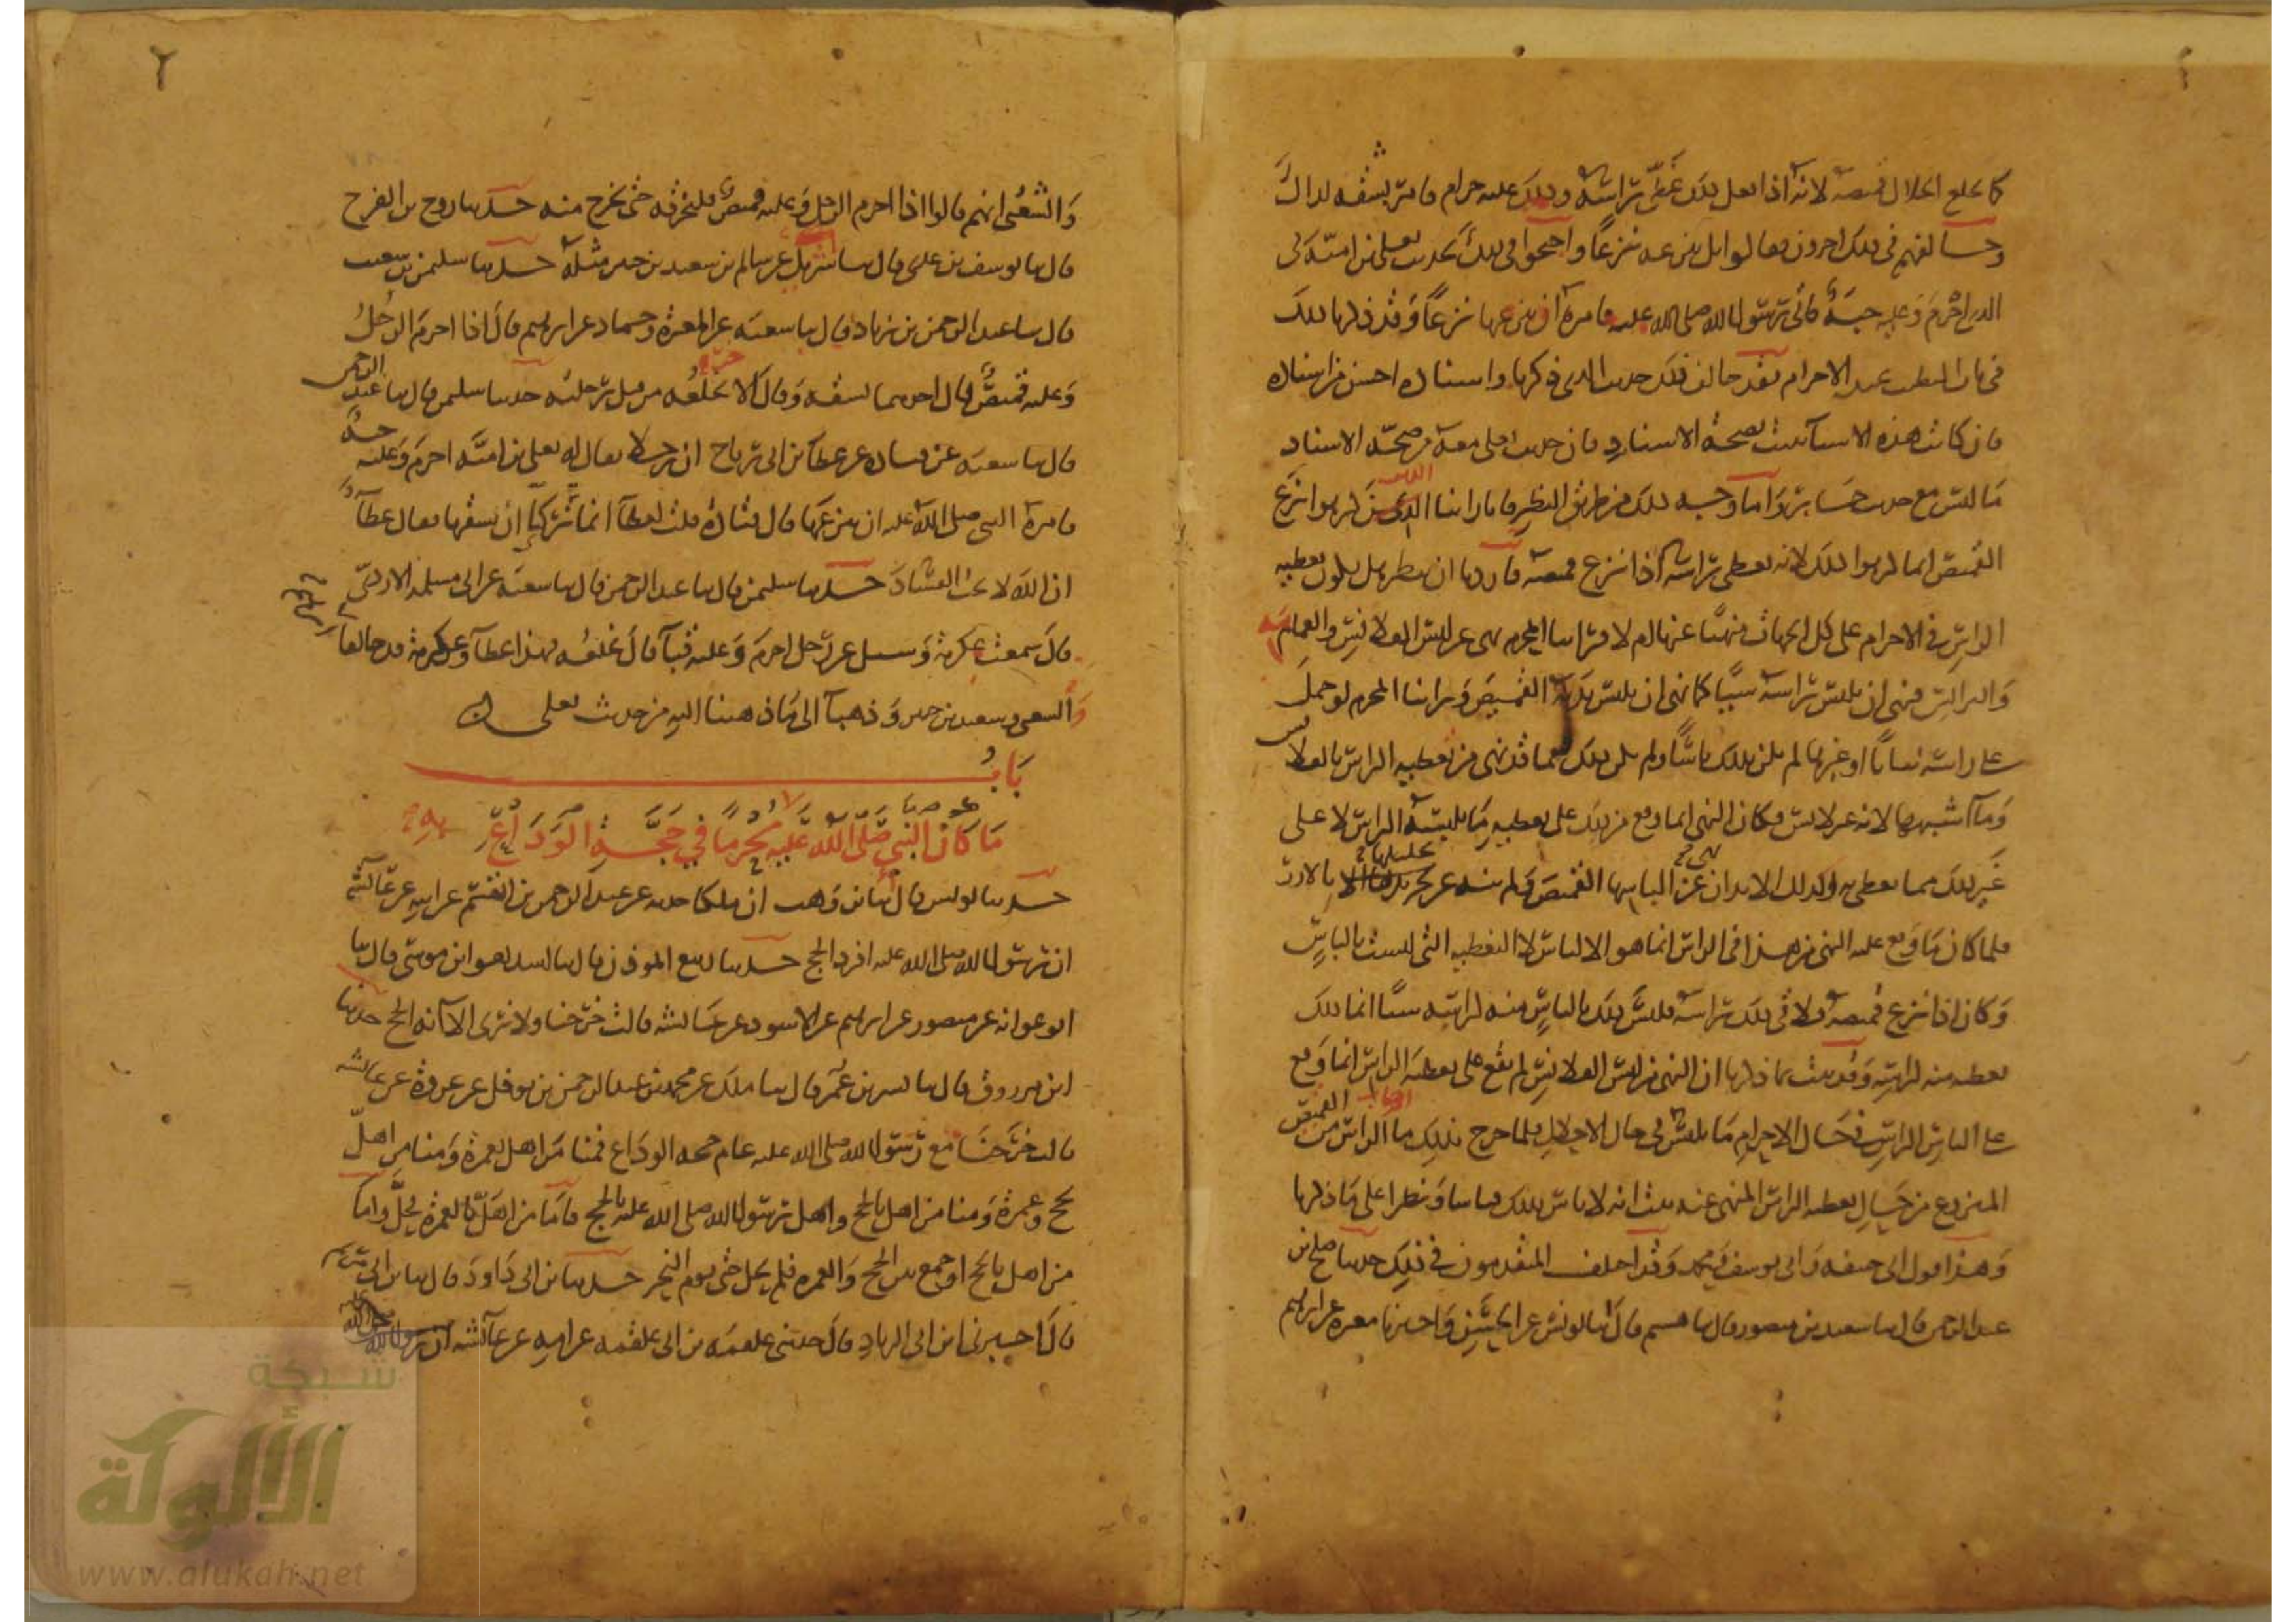 كما يخلع الحلال قميصه لانه اذا فعل ذلك غطى راسه وذلك عليه حرام فامر بشقه لذلك
وخالفهم في ذلك اخرون فقالوا بل ينزعه نزعا واحتجوا في ذلك بحديث يعلى بن امية في
الذي احرم وعليه جبة فاتى رسول الله صلى الله عليه فامره ان ينزعها نزعا وقد ذكرنا ذلك
في باب التطيب عند الاحرام فقد خالف ذلك حديث الذي ذكرنا واسناده احسن من اسناده
فان كانت هذه الاشيا تثبت بصحة الاسناد فان حديث يعلى معه من صحة الاسناد
ما ليس مع حديث جابر واما وجه ذلك من طريق النظر فانا راينا الذين كرهوا نزع
القميص انما كرهوا ذلك لانه يغطي راسه اذا نزع قميصه فاردنا ان ننظر هل يكون تغطيه
الراس في الاحرام على كل الجهات منهيا عنها ام لا فراينا المحرم نهى عن لبس القلانس والعمايم
والبرانس فنهى ان يلبس راسه شيا كما نهى ان يلبس بدنه القميص وراينا المحرم لو حمل
على راسه ثيابا او غيرها لم يكن بذلك باس ولم يكن ذلك مما قد نهى من تغطيه الراس بالقلانس
وما اشبهها لانه غير لابس فكان النهي انما وقع من ذلك على تغطيه ما يلبسه الراس لا على
غير ذلك مما يغطى به وكذلك الابدان نهى عن الباسها القميص ولم ينه عن تجليلها بالازر
فلما كان ما وقع عليه النهي من هذا في الراس انما هو الالباس لا التغطيه التي ليست بالباس
وكان اذا نزع قميصه فلاقى ذلك راسه فليس ذلك بالباس منه لراسه شيا انما ذلك
تغطيه منه لراسه وقد ثبت بما ذكرنا ان النهي من لبس القلانس لم يقع على تغطيه الراس انما وقع
على الباس الراس في حال الاحرام ما يلبس في حال الاحلال فلما خرج بذلك ما اصاب الراس من القميص
المنزوع من حال تغطيه الراس المنهي عنه ثبت انه لا باس بذلك قياسا ونظرا على ما ذكرنا
وهذا قول ابي حنيفه وابي يوسف ومحمد وقد اختلف المتقدمون في ذلك حدثنا صلح بن
عبد الرحمن قال ثنا سعيد بن منصور قال ثنا هشيم قال انا يونس عن الحسن واخبرنا مغيره عن ابرهيم
٢
والشعبي انهم قالوا اذا احرم الرجل وعليه قميص فليخرقه حتى يخرج منه حدثنا روح بن الفرج
قال ثنا يوسف بن عدي قال ثنا شريك عن سالم عن سعيد بن جبير مثله حدثنا سليمن بن شعيب
قال ثنا عبد الرحمن بن زياد قال ثنا شعبه عن المغيرة وحماد عن ابرهيم قال اذا احرم الرجل
وعليه قميص قال احدهما يشقه وقال الاخر يخلعه من قبل رجليه حدثنا سليمن قال ثنا عبد الرحمن
قال ثنا شعبه عن قتاده عن عطا بن ابي رباح ان رجلا يقال له يعلى بن امية احرم وعليه جبة
فامره النبي صلى الله عليه ان ينزعها قال قتادة قلت لعطا انما كنا نرى ان يشقها فقال عطا
ان الله لا يحب الفساد حدثنا سليمن قال ثنا عبد الرحمن قال ثنا شعبه عن ابي مسلمه الازدي
قال سمعت عكرمة وسيل عن رجل احرم وعليه قبا قال يخلعه فهذا عطا وعكرمة قد خالفا ابرهيم
والشعبي وسعيد بن جبير وذهبا الى ما ذهبنا اليه من حديث يعلى
باب
ما كان النبي صلى الله عليه محرما في حجة الوداع
حدثنا يونس قال انا ابن وهب ان ملكا حدثه عن عبد الرحمن بن القسم عن ابيه عن عائشه
ان رسول الله صلى الله عليه افرد الحج حدثنا ربيع الموذن قال ثنا اسد هو ابن موسى قال ثنا
ابو عوانه عن منصور عن ابرهيم عن الاسود عن عائشه قالت خرجنا ولا نرى الا انه الحج حدثنا
ابن مرزوق قال ثنا بشر بن عمر قال ثنا ملك عن محمد بن عبد الرحمن بن نوفل عن عروة عن عائشه
قالت خرجنا مع رسول الله صلى الله عليه عام حجه الوداع فمنا من اهل بعمرة ومنا من اهل
بحج وعمرة ومنا من اهل بالحج واهل رسول الله صلى الله عليه بالحج فاما من اهل بالعمرة فحل واما
من اهل بالحج او جمع بين الحج والعمره فلم يحل حتى يوم النحر حدثنا ابن ابي داود قال ثنا ابن ابي مريم
قال اخبرنا ابن ابي الزناد قال حدثني علقمه بن ابي علقمه عن امه عن عائشه ان رسول الله صلى الله عليه
شبكة
الألوكة
www.alukah.net